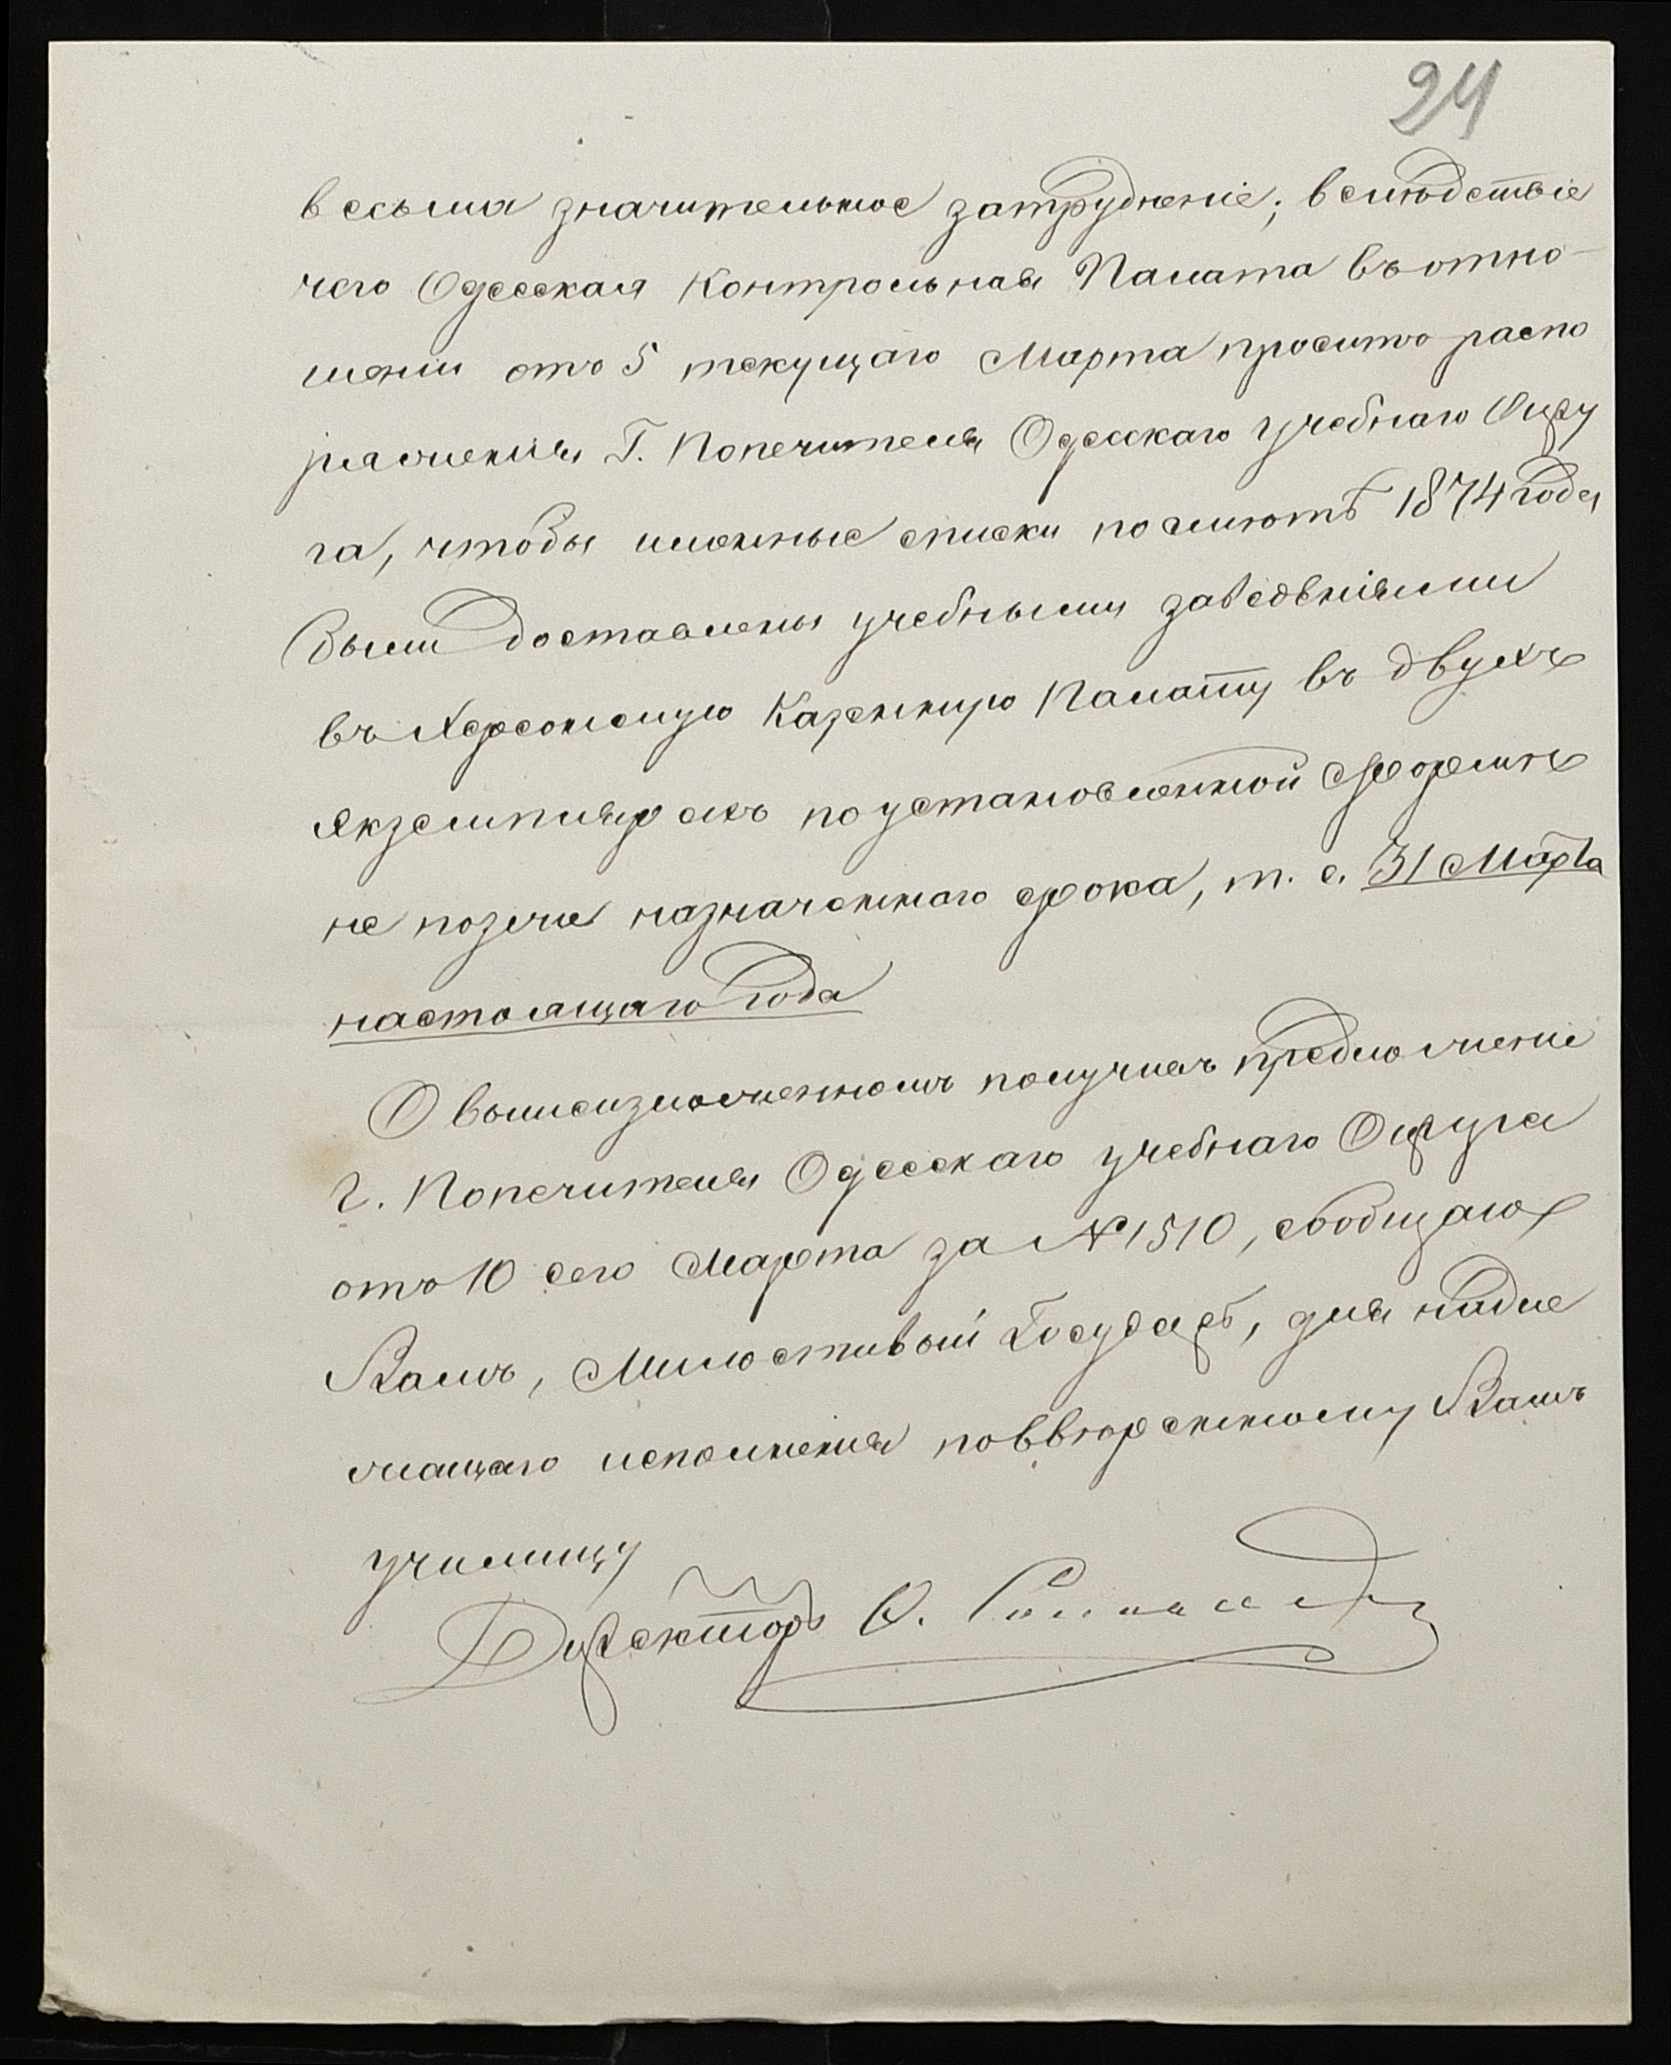 24
весьма значительное затрудненіе; вслѣдствіе
чего Одесская Контрольная Палата въ отно-
шеніи отъ 5 текущаго Марта проситъ распо
ряженія Г. Попечителя Одесскаго учебнаго Окру
га, чтобы именные списки по смѣтѣ 1874 года
были доставлены учебными заведѣніями
въ Херсонскую Казенную Палату въ двухъ
экземплярахъ по установленной формѣ
не позже назначеннаго срока, т. е. 31 Марта
настоящаго года
О вышеизложенномъ получивъ предложеніе
Г. Попечителя Одесскаго учебнаго Округа
отъ 10 сего Марта за № 1510, сообщаю
Вамъ, Милостивый Государь, для надле
жащаго исполненія по ввѣренному Вамъ
училищу
Директоръ